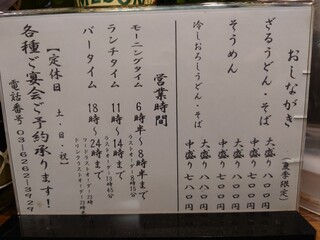 おしながき
(夏季限定)
ざるうどん・そば
大盛り 八〇〇円
中盛り 七〇〇円
そうめん
大盛り
中盛り
冷しおろしうどん・そば
大盛り
中盛り 七八〇円
営業時間
モーニングタイム 6時半~8時半まで
ラストオーダー8時15分
ランチタイム 11時~14時まで
ラストオーダー13時45分
バータイム 18時~24時まで
【定休日 土・日・祝】
各種ご宴会ご予約承ります!
電話番号 03-6262-3729